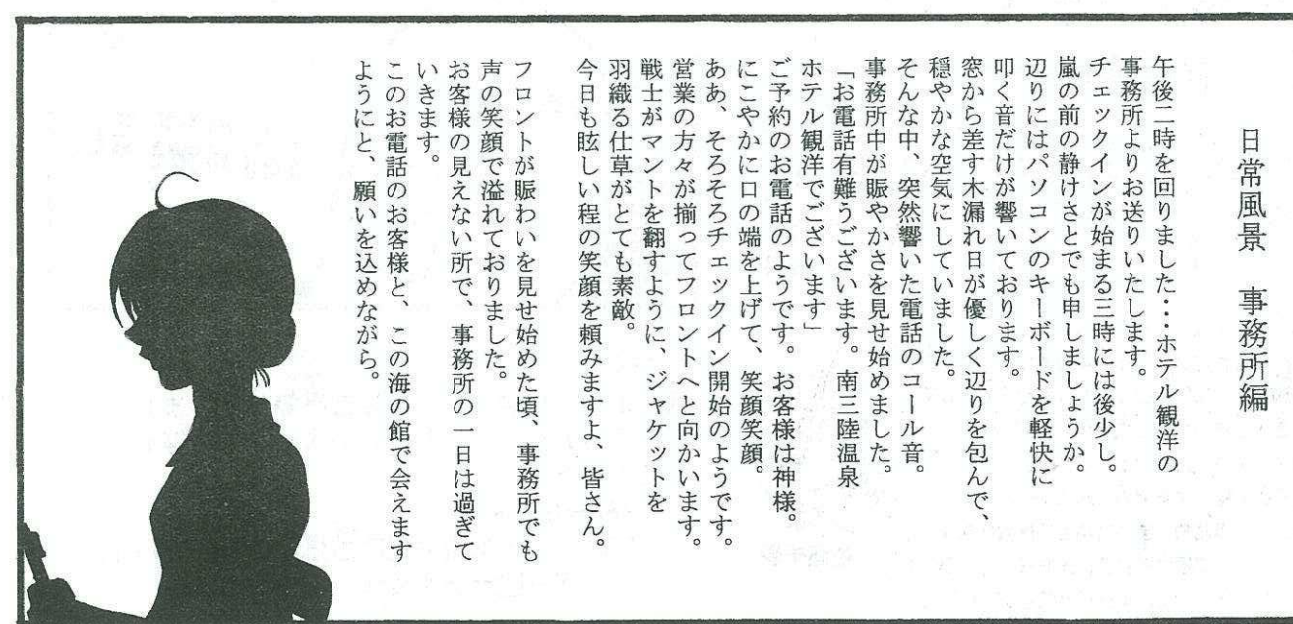 日常風景　事務所編
午後二時を回りました・・・ホテル観洋の
事務所よりお送りいたします。
チェックインが始まる三時には後少し。
嵐の前の静けさとでも申しましょうか。
辺りにはパソコンのキーボードを軽快に
叩く音だけが響いております。
窓から差す木漏れ日が優しく辺りを包んで、
穏やかな空気にしていました。
そんな中、突然響いた電話のコール音。
事務所中が賑やかさを見せ始めました。
「お電話有難うございます。南三陸温泉
ホテル観洋でございます」
ご予約のお電話のようです。お客様は神様。
にこやかに口の端を上げて、笑顔笑顔。
ああ、そろそろチェックイン開始のようです。
営業の方々が揃ってフロントへと向かいます。
戦士がマントを翻すように、ジャケットを
羽織る仕草がとても素敵。
今日も眩しい程の笑顔を頼みますよ、皆さん。
フロントが賑わいを見せ始めた頃、事務所でも
声の笑顔で溢れておりました。
お客様の見えない所で、事務所の一日は過ぎて
いきます。
このお電話のお客様と、この海の館で会えます
ようにと、願いを込めながら。